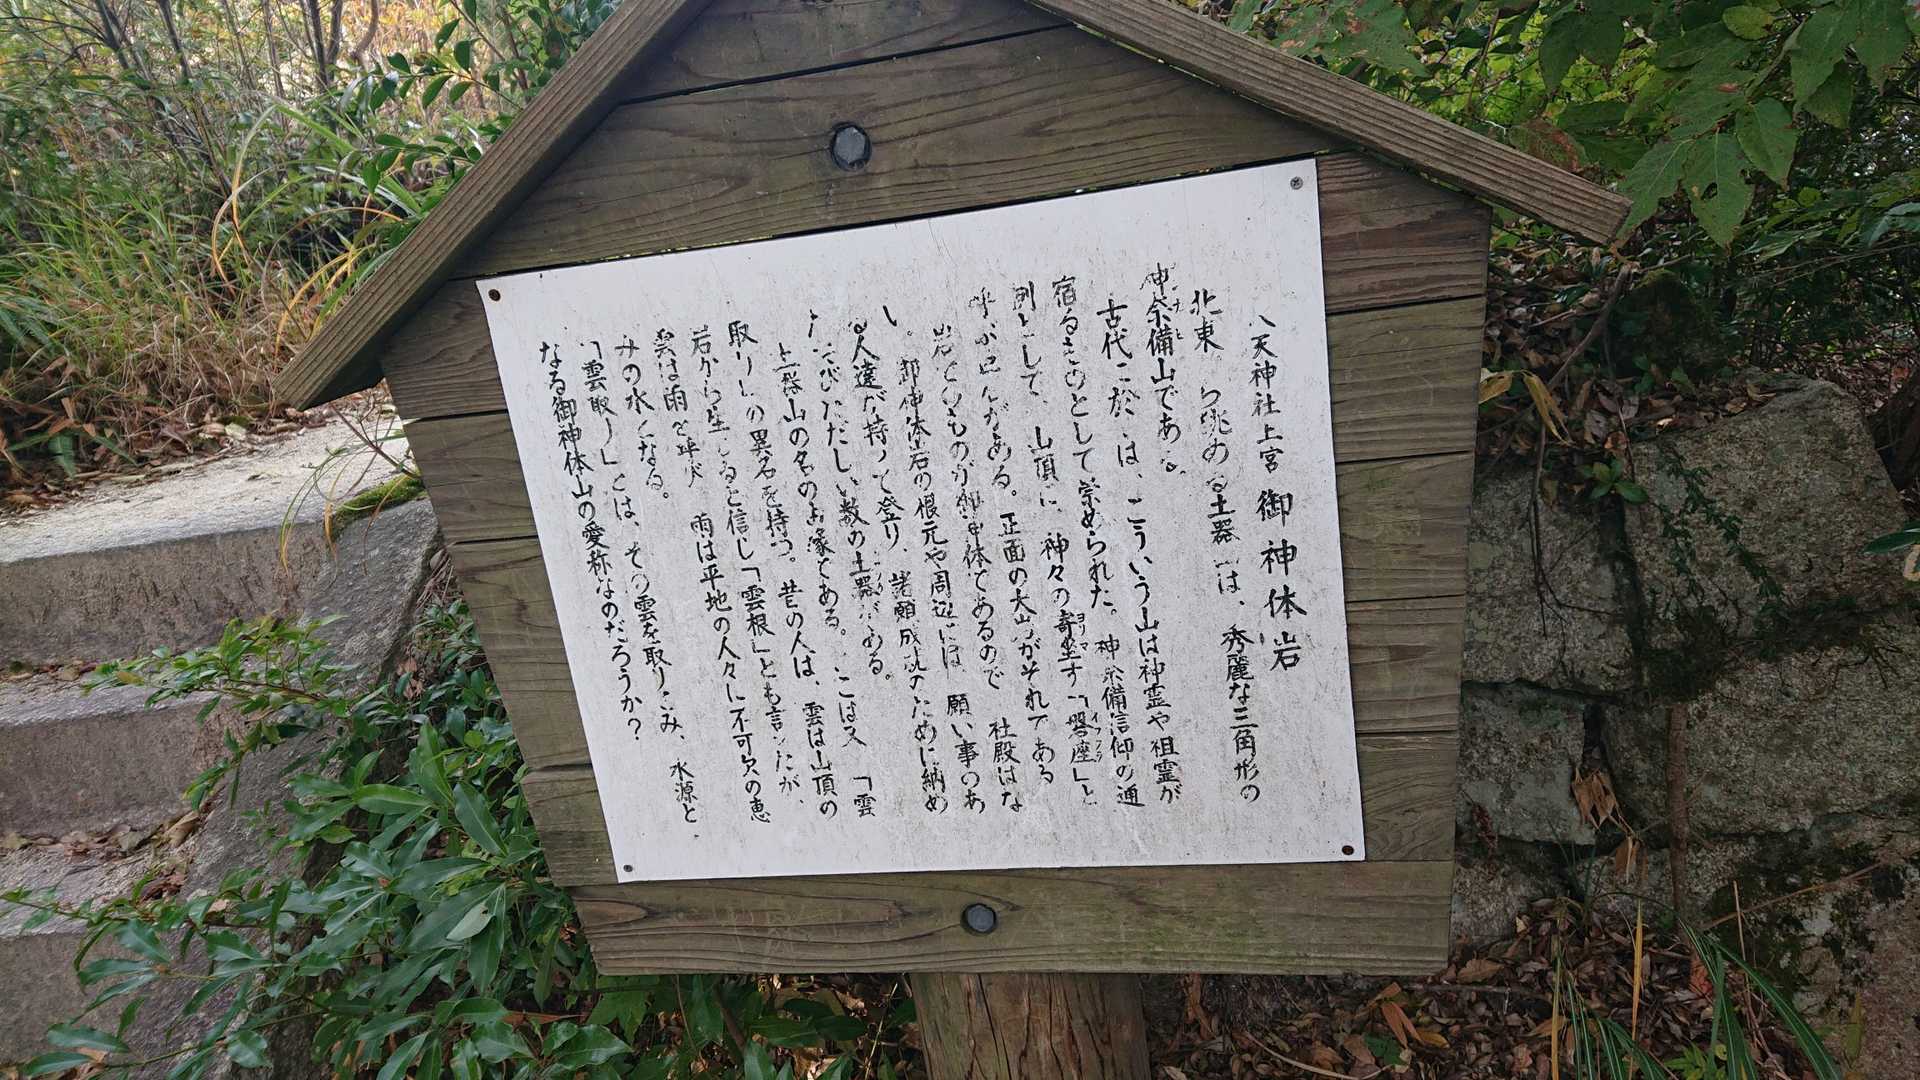 八天神社上宮 御神体岩
北東 ら眺める土器 は、秀麗な三角形の
神奈備山である。
古代に於 は、こういう山は神霊や祖霊が
宿るものとして崇められた。神奈備信仰の通
例として、山頂に 神々の寄坐す「磐座」と
呼ぶ がある。正面の大 がそれである
岩そのものが御神体であるので 社殿はな
い。御神体岩の根元や周辺には 願い事のあ
る人達が持って登り、諸願成就のために納め
たおびただしい数の土器がある。
土器山の名のお縁である。ここは又「雲
取り」の異名を持つ。昔の人は、雲は山頂の
岩から生じると信じ「雲根」とも言ったが、
雲は雨を呼び 雨は平地の人々に不可欠の恵
みの水となる。
「雲取り」とは、その雲を取りこみ、水源と
なる御神体山の愛称なのだろうか?